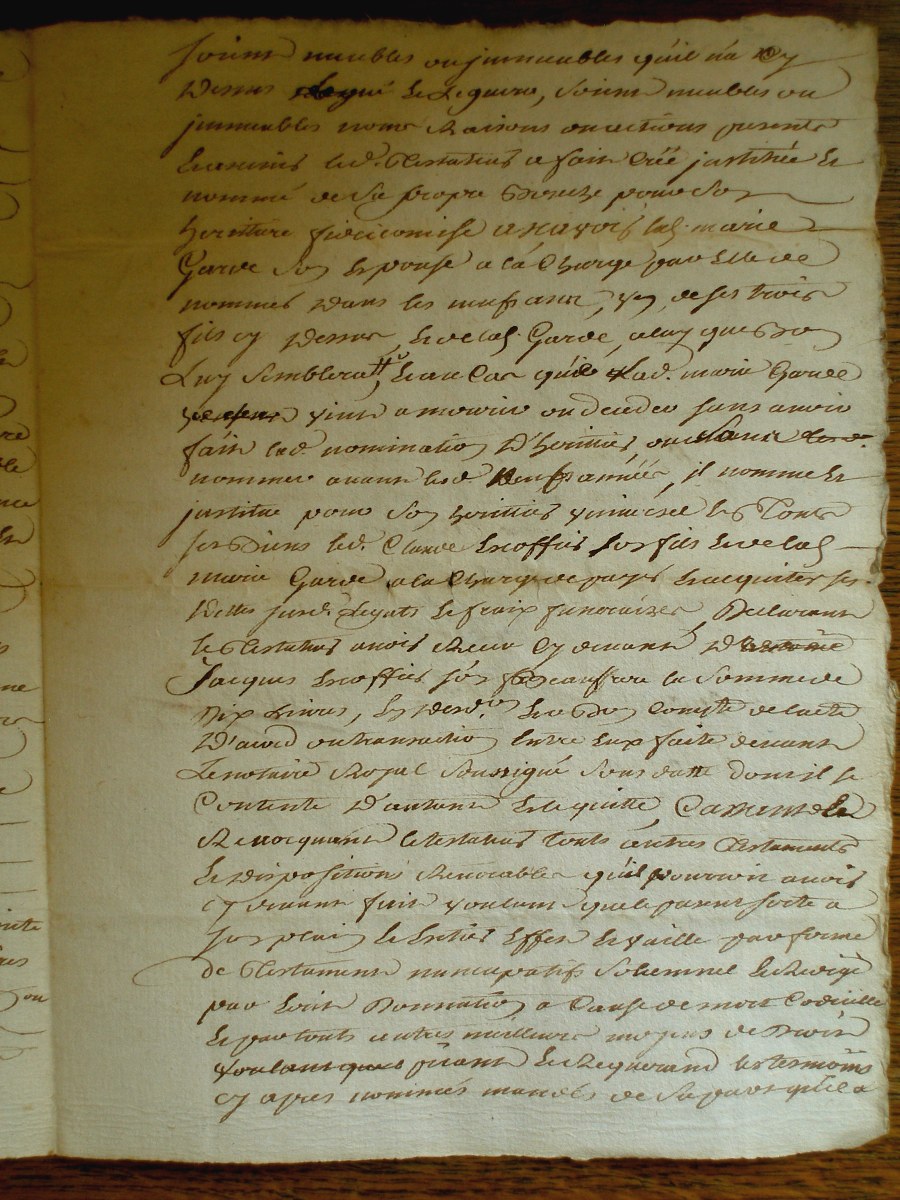 soient meubles ou jmmeubles qu'il n'a cy
Dessus Legué Et Leguera, soient meubles ou
jmmeubles noms Raisons ou actions presents
Et avenirs led. Testateur a fait Créé justitué Et
nommé de Sa propre Bouche pour Son
heritiere fideicomise a scavoir lad. marie
Garde Son Epouse a la Charge par Elle de
nommer Dans les neuf ans, un de ses trois
fils cy Dessus, Et de lad. Garde, celuy que Bon
Luy Semblera, Et au Cas qu'elle Lad. marie Garde
vint a mourir ou deceder sans avoir
fait lad. nomination D'heritier, ou sans
nommer avant lesd. neuf années, il nomme Et
justitue pour Son heritier universel Et Touts
ses Biens led. Claude Escoffier son fils Et de lad.
marie Garde a la Charge de payer Et acquiter ses
Dettes susd. Legats Et fraix funeraires, Declarant
le Testateur avoir Receu Cy devant
Jacques Escoffier son frere la Somme de
Dix Livres, En Et a Bon Compte de lacte
D'acord ou transaction Entre Eux faite devant
Le notaire Royal Soussigné Sous datte dont il Se
Contente D'autant Et le quitte, Cassant Et
Revocquant le testateur touts autres Testaments
Et Dispositions Revocables qu'il pourroit avoir
cy devant fait voulant que le present sorte a
son plain Et Entier Effet Et vaille par forme
de Testament nuncupatif Solemnel Et Redigé
par Ecrit Donnation a Cause de mort Codicille
Et par touts autres meilleurs moyens de Droit
voulant quoy priant Et Requerant les temoins
cy apres nommés mandés de Sa part qu'il a